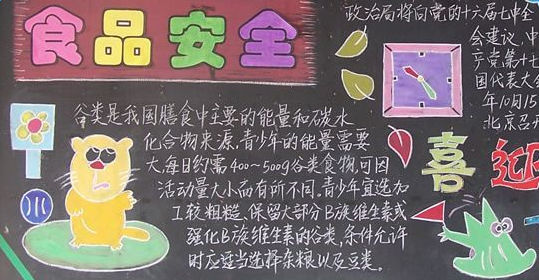 食品安全
谷类是我国膳食中主要的能量和碳水
化合物来源,青少年的能量需要
大,每日约需400~500g谷类食物,可因
活动量大小而有所不同。青少年宜选加
工较粗糙、保留大部分B族维生素或
强化B族维生素的谷类,条件允许
时应适当选择杂粮以及豆类。
政治局将向党的十六届七中全
会建议,中
产党第十七
国代表大会
年10月15
北京召开
喜迎